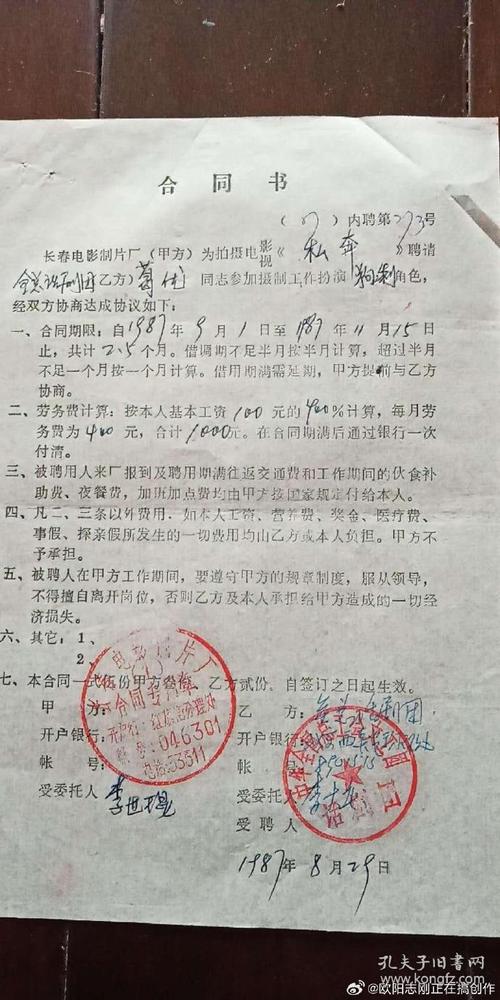 合同书
(87)内聘第273号
长春电影制片厂(甲方)为拍摄电影视《私奔》聘请
全总话剧团乙方)葛优同志参加摄制工作扮演 角色,
经双方协商达成协议如下:
一、合同期限:自1987年9月1日至1987年11月15日
止,共计2.5个月。借调期不足半月按半月计算,超过半月
不足一个月按一个月计算。借用期满需延期,甲方提前与乙方
协商。
二、劳务费计算:按本人基本工资100元的400%计算,每月劳
务费为400元,合计1000元。在合同期满后通过银行一次
付清。
三、被聘用人来厂报到及聘用期满往返交通费和工作期间的伙食补
助费、夜餐费,加班加点费均由甲方按国家规定付给本人。
四、凡二、三条以外费用,如本人工资、营养费、奖金、医疗费、
事假、探亲假所发生的一切费用均由乙方或本人负担。甲方不
予承担。
五、被聘人在甲方工作期间,要遵守甲方的规章制度,服从领导,
不得擅自离开岗位,否则乙方及本人承担给甲方造成的一切经
济损失。
六、其它:1、
2、
七、本合同一式伍份甲方叁份,乙方贰份,自签订之日起生效。
甲方:
开户银行:
帐号:
受委托人
电影制片厂
合同专用章
开户行:红旗街办理处
帐号:046301
电话:53311
乙方:全总话剧团
开户银行:
帐号:
受委托人
受聘人
话剧团
1987年8月29日
孔夫子旧书网
@欧阳志刚正在搞创作